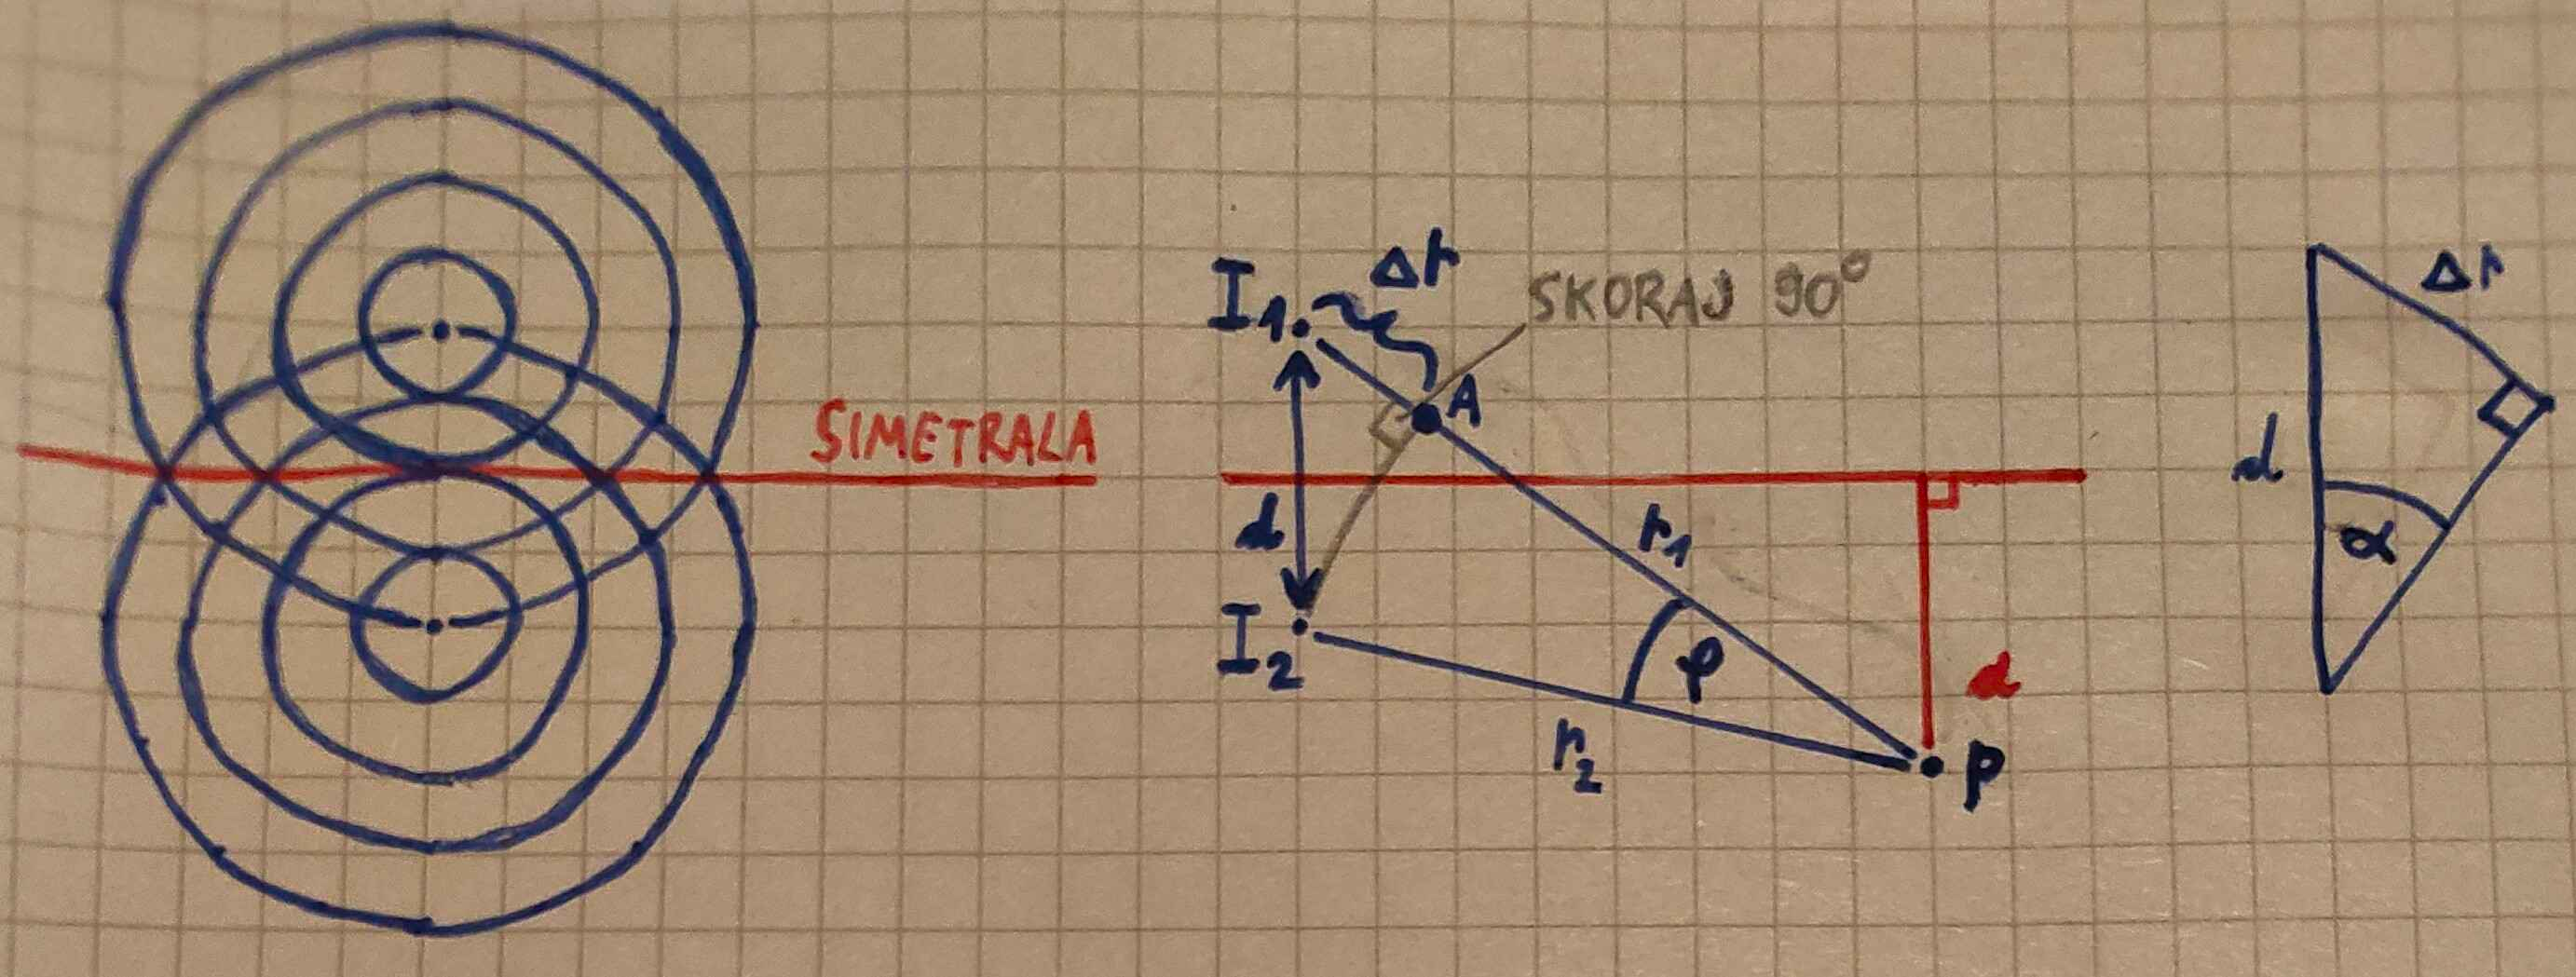 SIMETRALA
I₁
Δr
SKORAJ 90°
A
d
r₁
I₂
φ
r₂
d
P
Δr
d
α